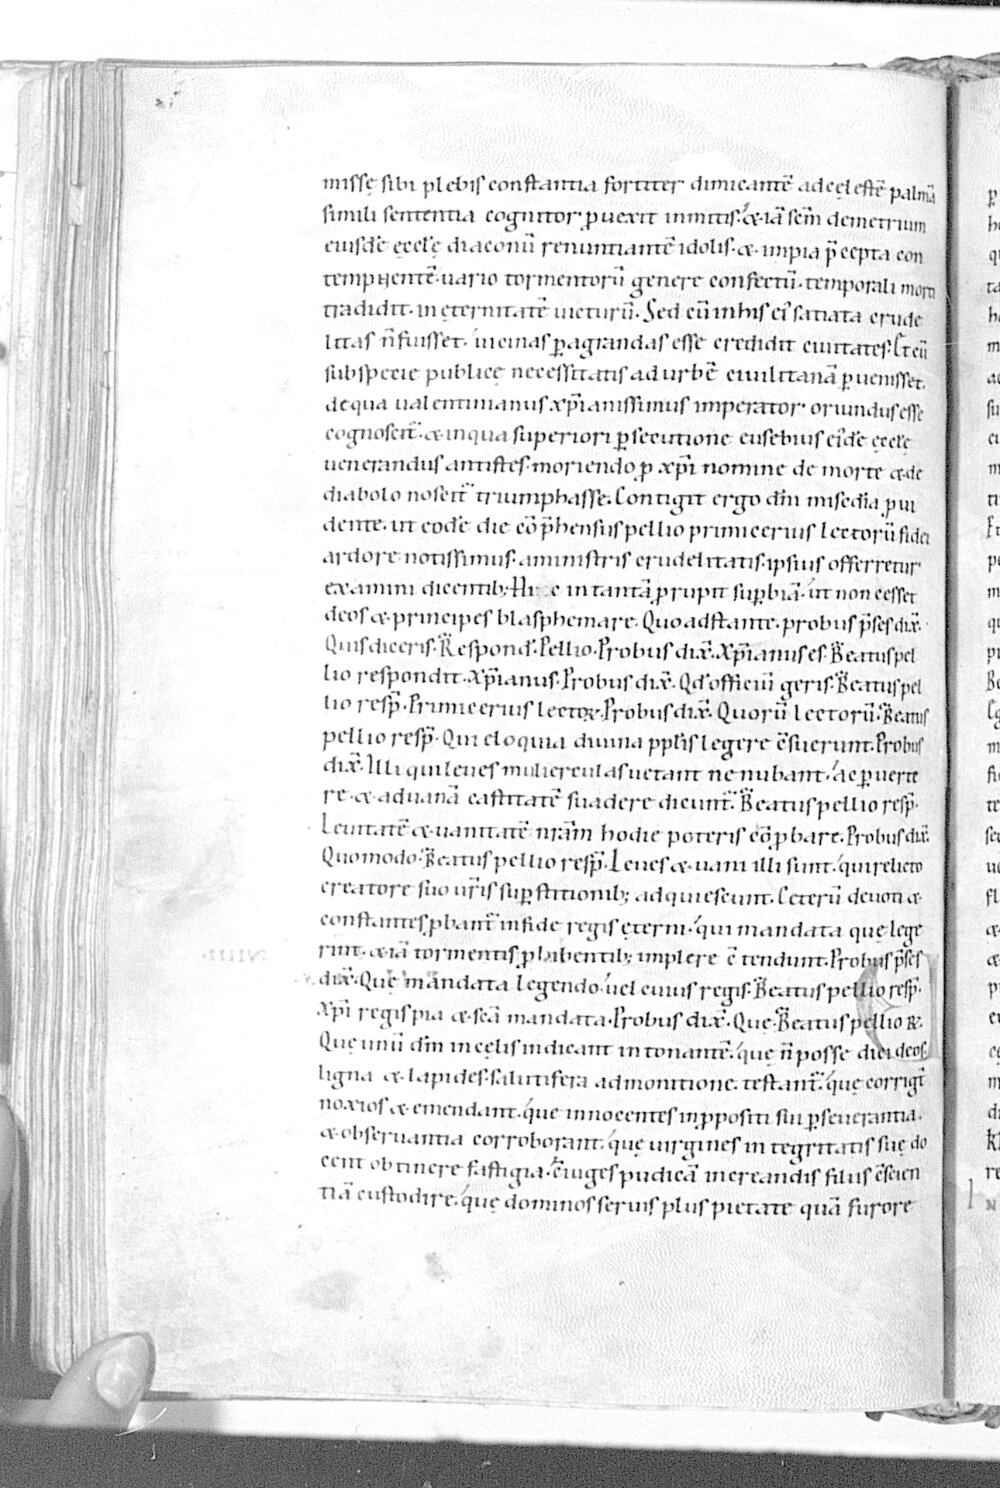 missę sibi plebis constantia fortiter dimicantē ad cęlestē palmā
simili sententia cognitor puexit inmitis. & iā scm demetrium
eiusdē ęccle diaconū renuntiantē idolis. & impia p̄cepta con
tempnentē. uario tormentorū genere confectū. temporali morti
tradidit. in ęternitatē uicturū. Sed cū in his ei satiata crude
litas n̄ fuisset. uicinas pagrandas esse credidit ciuitates. Et cū
sub specie publicę necessitatis ad urbē ciuilitanā puenisset.
de qua ualentinianus xp̄ianissimus imperator oriundus esse
cognoscit̄. & in qua superiori psecutione eusebius eidē ęccle
uenerandus antistes. moriendo p xp̄i nomine de morte & de
diabolo noscit̄ triumphasse. Contigit ergo dn̄i misc̄dia pui
dente. ut eodē die cōp̄hensus pellio primicerius lectorū fidei
ardore notissimus. a ministris crudelitatis ipsius offerretur
examini dicentib; in tantā prupit supbiā. ut non cesset
deos & principes blasphemare. Quo adstante. probus p̄ses dix̄.
Quis diceris. Respond̄. Pellio. Probus dix̄. Xp̄ianus es. Beatus pel
lio respondit. Xp̄ianus. Probus dix̄. Qd officiū geris. Beatus pel
lio resp̄. Primicerius lector. Probus dix̄. Quorū lectorū. Beatus
pellio resp̄. Qui eloquia diuina pplis legere c̄suerunt. Probus
dix̄. Illi qui leues mulierculas uetant ne nubant. ac puerte
re. & ad uanā castitatē suadere dicunt̄. Beatus pellio resp̄.
Leuitatē & uanitatē nr̄am hodie poteris cōpbare. Probus dix̄.
Quomodo. Beatus pellio resp̄. Leues & uani illi sunt. qui relicto
creatore suo ur̄is supstitionib; adquiescunt. Ceterū deuoti &
constantes pbant̄ in fide regis ęterni. qui mandata quę lege
rint. & iā tormentis phibentib; implere c̄tendunt. Probus p̄ses
dix̄. Quę mandata legendo. uel cuius regis. Beatus pellio resp̄.
Xp̄i regis pia & scā mandata. Probus dix̄. Quę. Beatus pellio R.
Quę unū dn̄m in cęlis indicant intonantē. quę n̄ posse dici deos.
ligna & lapides. salutifera admonitione testant̄. quę corrigt̄
noxios & emendant. quę innocentes in ppositi sui pseuerantia.
& obseruantia corroborant. quę uirgines integritatis suę do
cent obtinere fastigia. c̄iuges pudicā in creandis filiis c̄scien
tiā custodire. quę dominos seruis plus pietate quā furore